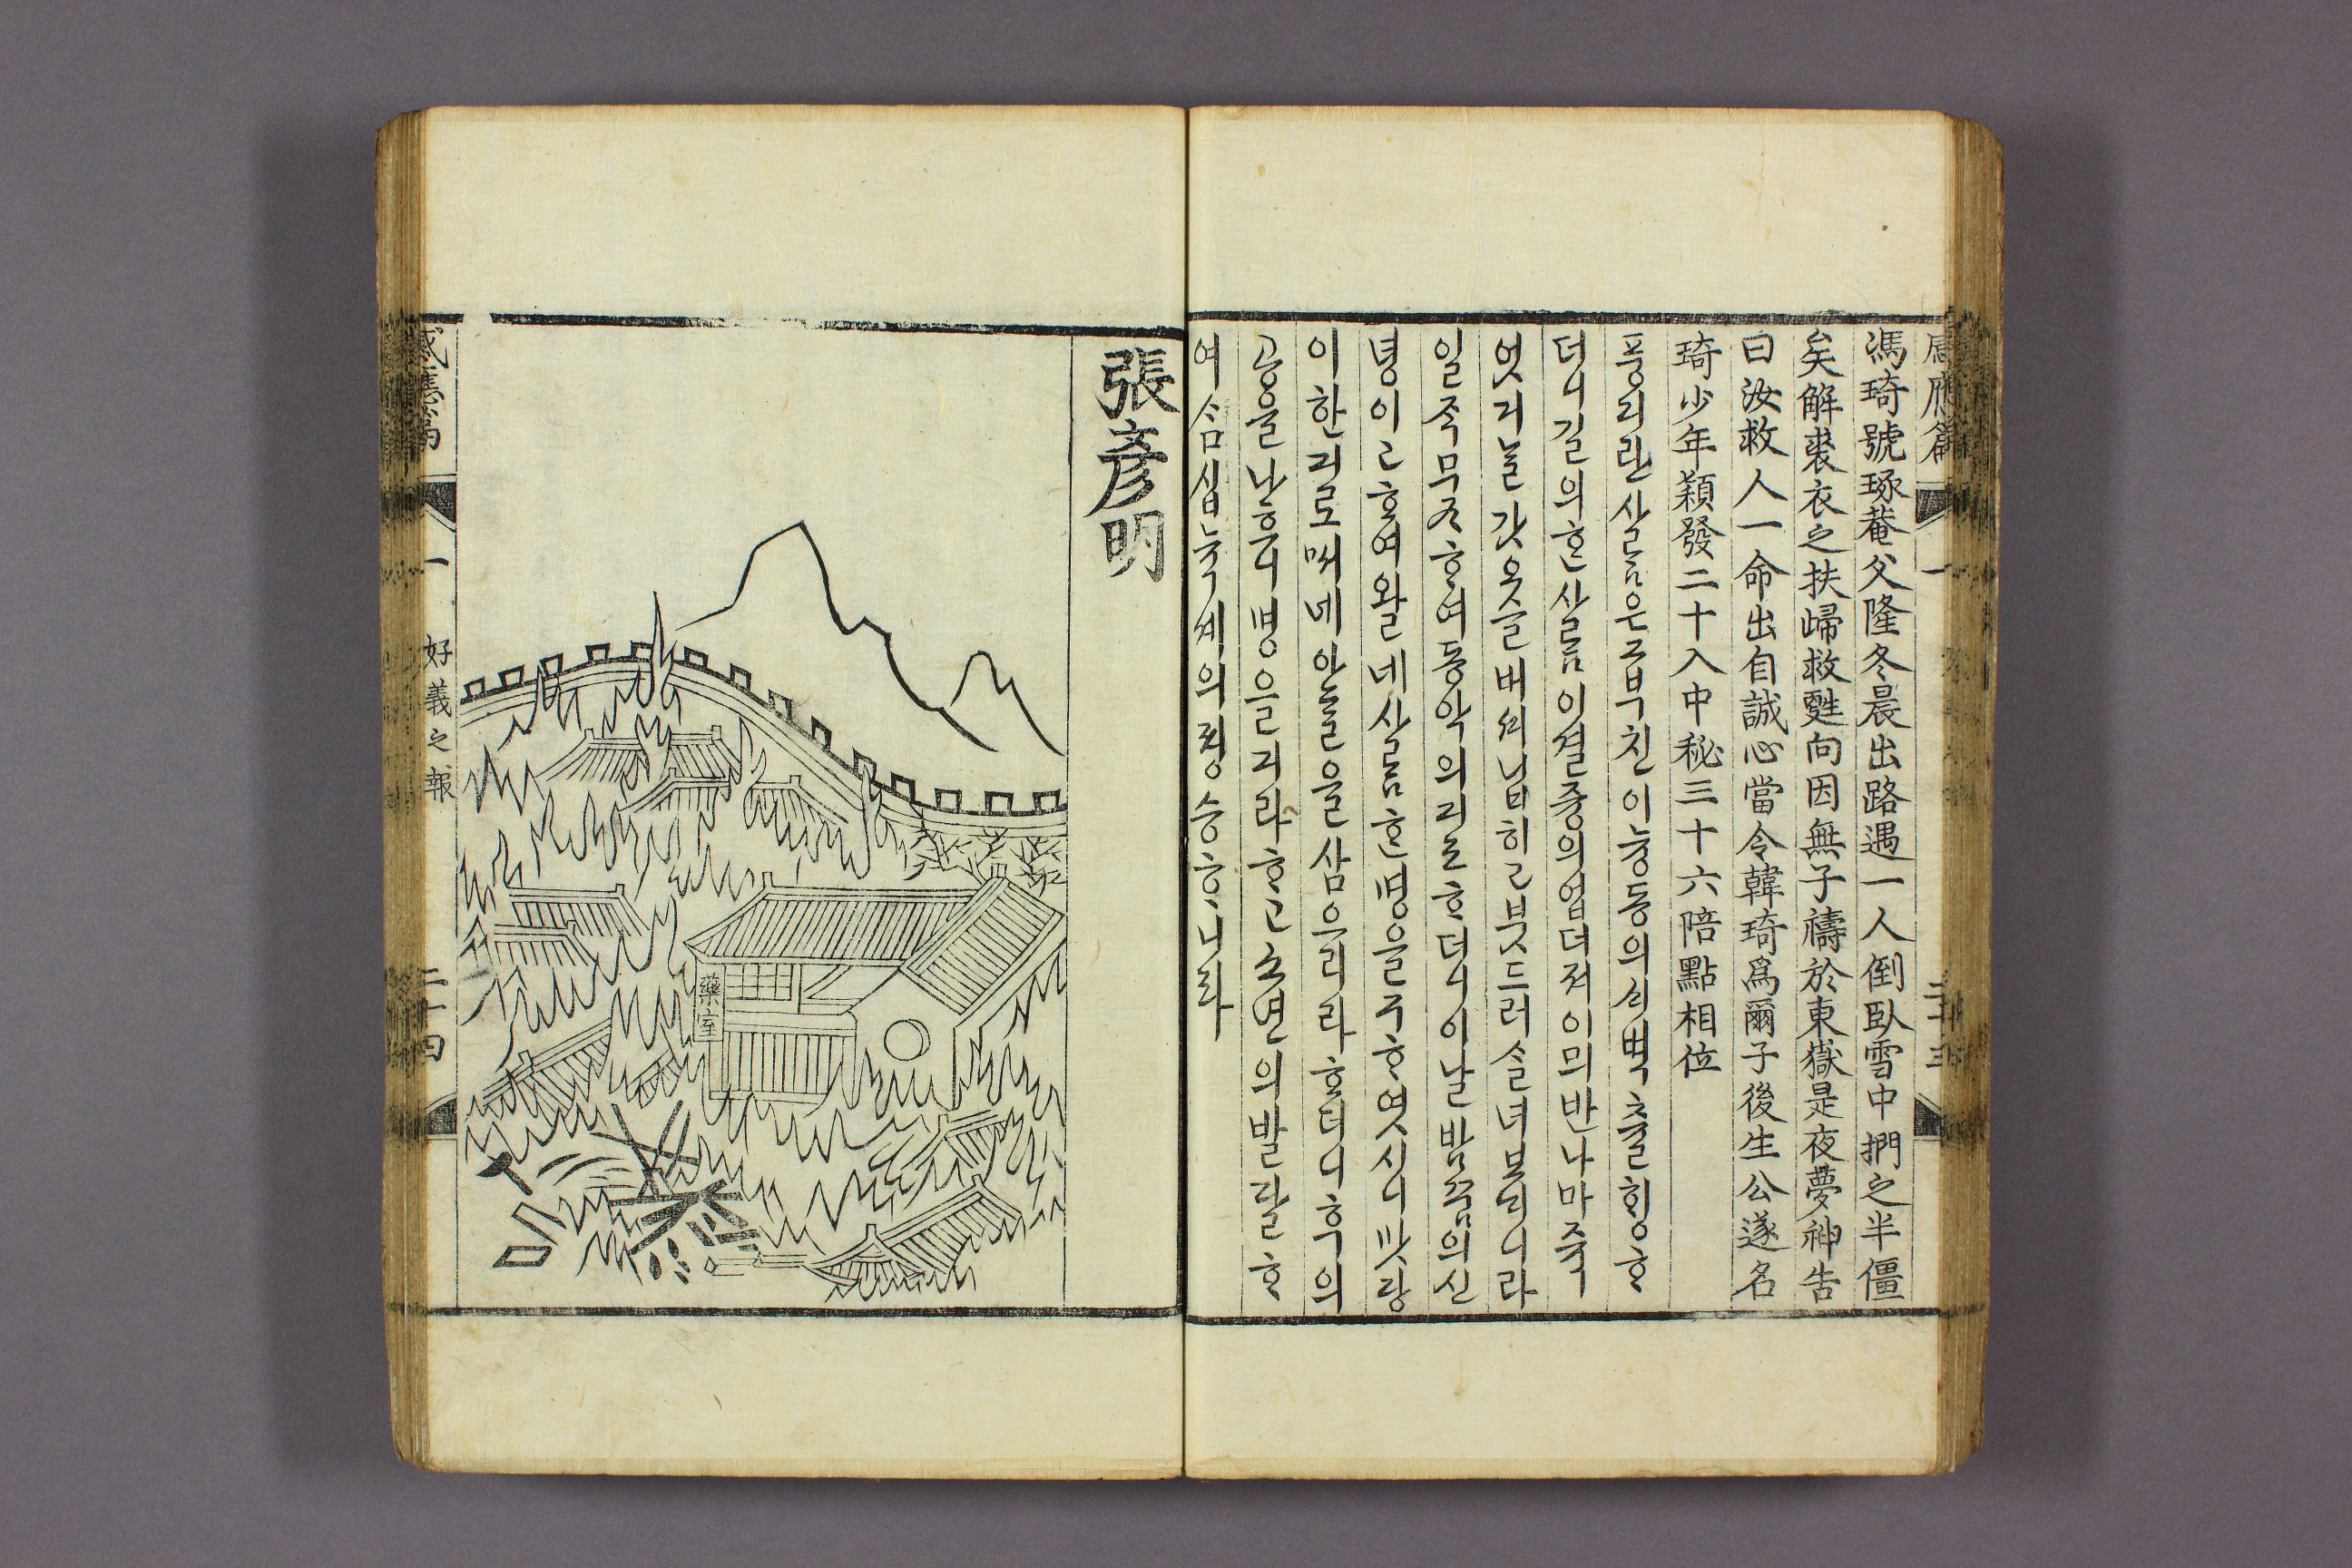 感應篇 一 二十三
馮琦號琢菴父隆冬晨出路遇一人倒臥雪中捫之半僵
矣解裘衣之扶歸救甦向因無子禱於東嶽是夜夢神告
曰汝救人一命出自誠心當令韓琦爲爾子後生公遂名
琦少年穎發二十入中秘三十六陪點相位
풍긔란 사ᄅᆞᆷ은 그 부친이 능동의 ᄉᆡ벽 츌ᄒᆡᆼᄒᆞ
더니 길의 ᄒᆞᆫ 사ᄅᆞᆷ이 셜즁의 업더져 이믜 반나마 죽
엇거ᄂᆞᆯ 갓옷슬 버셔 닙히고 븟드러 슬녀 보ᄂᆡ니라
일즉 무ᄌᆞᄒᆞ여 동악의 긔도ᄒᆞ더니 이날 밤 ᄭᅮᆷ의 신
녕이 고ᄒᆞ여 왈 네 사ᄅᆞᆷ ᄒᆞᆫ 명을 구ᄒᆞ엿시니 ᄯᅡᆺ랑
이 한긔로ᄡᅥ 네 아ᄃᆞᆯ을 삼으리라 ᄒᆞ더니 후의
공을 나흐ᄆᆡ 명을 긔라 ᄒᆞ고 쇼년의 발괄ᄒᆞ
여 삼십뉵셰의 졍승ᄒᆞ니라
張彦明
藥室
感應篇 一 好義之報 二十四